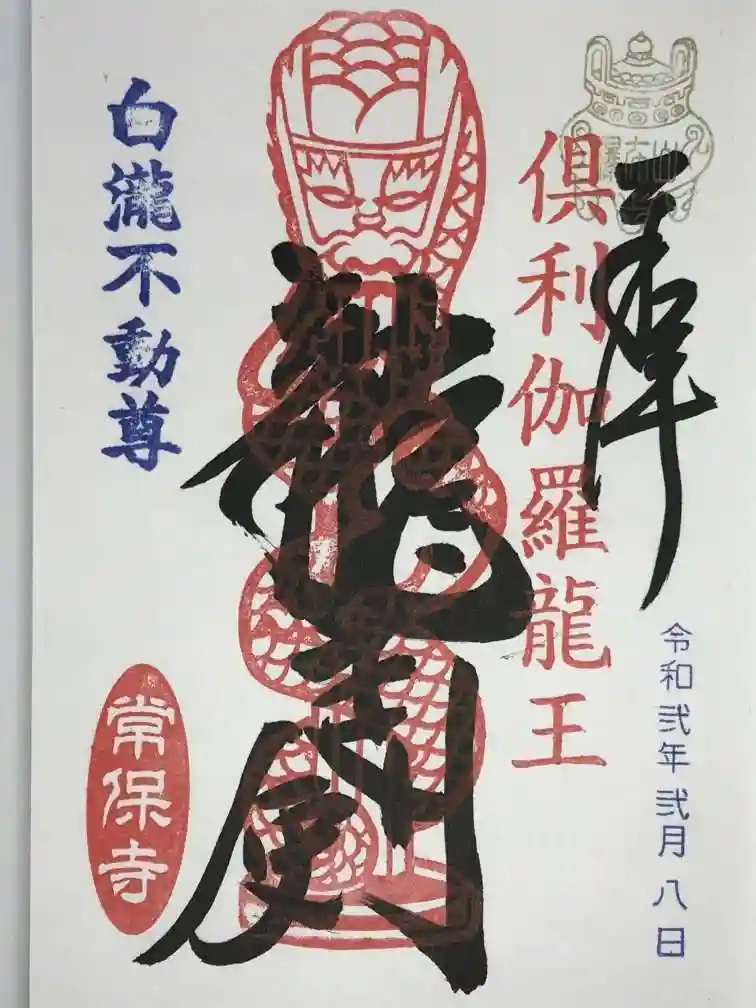 奉拝
令和弐年弐月八日
倶利伽羅龍王
龍
白瀧不動尊
常保寺